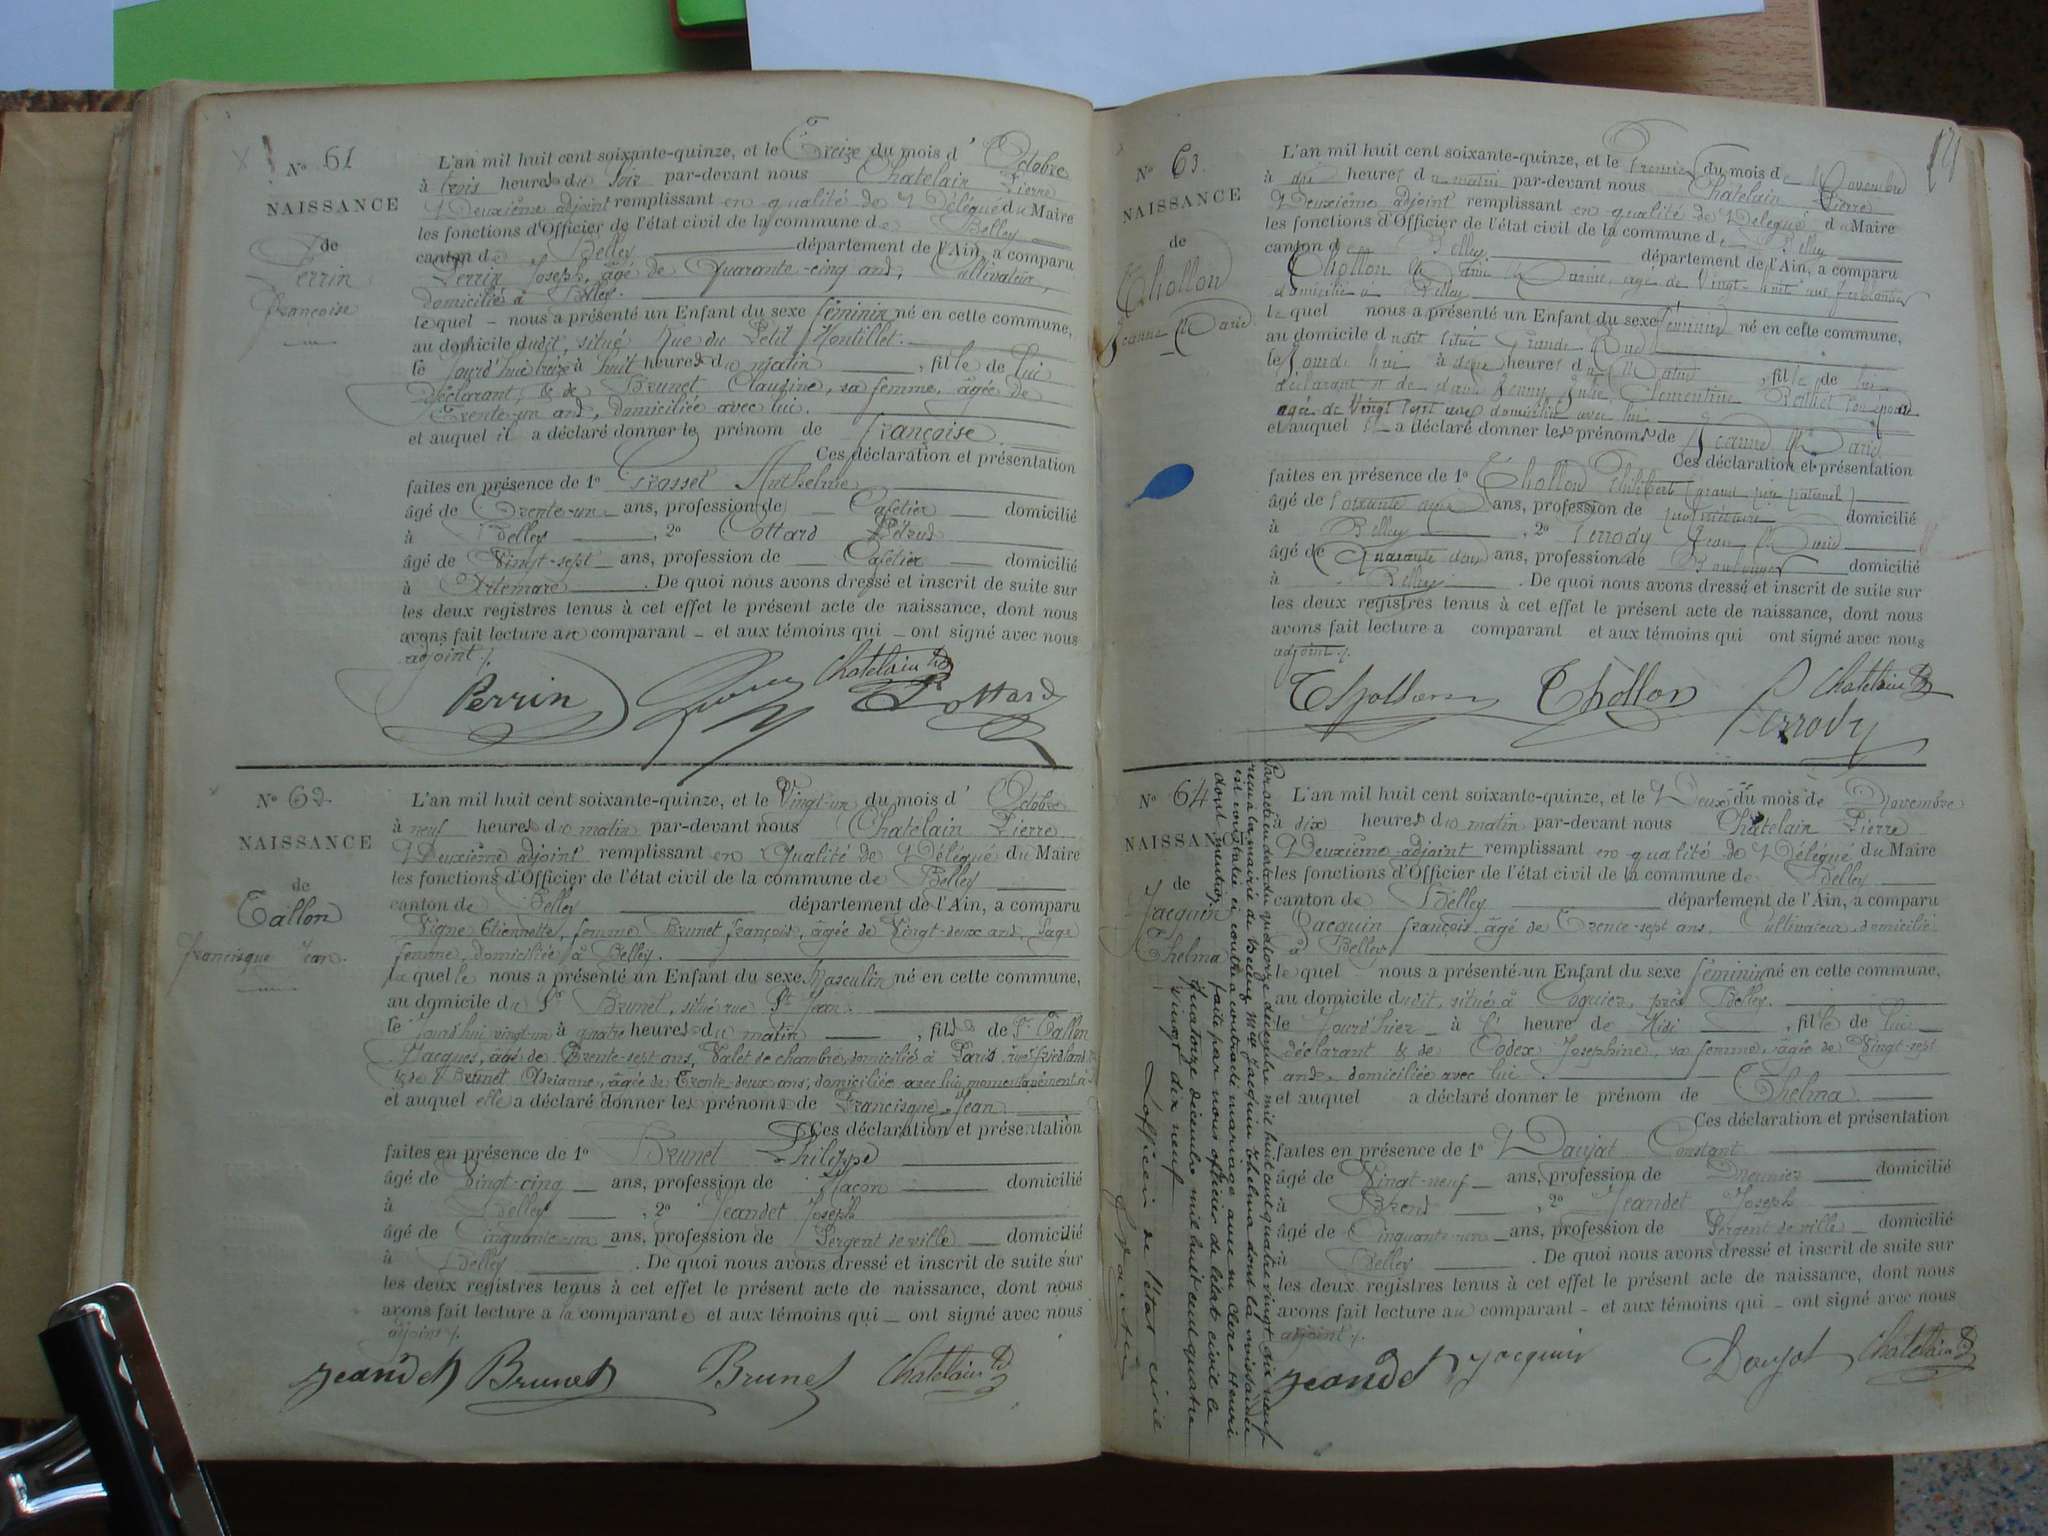 N° 61
NAISSANCE
de
Perrin
Françoise
L'an mil huit cent soixante-quinze, et le Treize du mois d' Octobre
à trois heures du soir par-devant nous Chatelain Pierre
Deuxième adjoint remplissant en qualité de Délégué du Maire
les fonctions d'Officier de l'état civil de la commune de Belley
canton de Belley département de l'Ain, a comparu
Perrin Joseph, âgé de Quarante-cinq ans, Cultivateur,
domicilié à Belley.
le quel nous a présenté un Enfant du sexe féminin né en cette commune,
au domicile dudit, situé Rue du Petit Montillet.
le jourd'hui treize à huit heures du matin, fille de lui
déclarant, & de Brunet Claudine, sa femme, âgée de
Trente-un ans, domiciliée avec lui.
et auquel il a déclaré donner le prénom de Françoise
Ces déclaration et présentation
faites en présence de 1° Grosset Anthelme
âgé de Trente-un ans, profession de Cafetier domicilié
à Belley, 2° Cottard
âgé de Vingt-sept ans, profession de Cafetier domicilié
à Artemare. De quoi nous avons dressé et inscrit de suite sur
les deux registres tenus à cet effet le présent acte de naissance, dont nous
avons fait lecture au comparant et aux témoins qui ont signé avec nous
adjoint.
Perrin Chatelain Cottard
N° 62
NAISSANCE
de
Tallon
Francisque Jean
L'an mil huit cent soixante-quinze, et le Vingt-un du mois d' Octobre
à neuf heures du matin par-devant nous Chatelain Pierre
Deuxième adjoint remplissant en Qualité de Délégué du Maire
les fonctions d'Officier de l'état civil de la commune de Belley
canton de Belley département de l'Ain, a comparu
Vigne Etiennette, femme Brunet François, âgée de Vingt-deux ans, Sage
femme, domiciliée à Belley.
laquelle nous a présenté un Enfant du sexe Masculin né en cette commune,
au domicile du Sr Brunet, situé rue St Jean.
le jourd'hui vingt-un à quatre heures du matin, fils de Sr Tallon
Jacques, âgé de Trente-sept ans, Valet de chambre, domicilié à Paris, rue Friedland
& de Brunet Adrianne, âgée de Trente-deux ans, domiciliée avec lui, momentanément à
et auquel elle a déclaré donner les prénoms de Francisque Jean
Ces déclaration et présentation
faites en présence de 1° Brunet Philippe
âgé de Vingt-cinq ans, profession de Maçon domicilié
à Belley, 2° Jeandet Joseph
âgé de Cinquante-un ans, profession de Sergent de ville domicilié
à Belley. De quoi nous avons dressé et inscrit de suite sur
les deux registres tenus à cet effet le présent acte de naissance, dont nous
avons fait lecture a la comparante et aux témoins qui ont signé avec nous
adjoint.
Jeandet Brunet Brunet Chatelain
N° 63.
NAISSANCE
de
Thollon
Jeanne Marie
L'an mil huit cent soixante-quinze, et le Premier du mois de Novembre
à dix heures du matin par-devant nous Chatelain Pierre
Deuxième adjoint remplissant en qualité de Délégué du Maire
les fonctions d'Officier de l'état civil de la commune de Belley
canton de Belley département de l'Ain, a comparu
Thollon Marie, agé de Vingt-huit ans ferblantier
domicilié à Belley
le quel nous a présenté un Enfant du sexe féminin né en cette commune,
au domicile dudit situé Grande Rue
le jourd'hui à deux heures du Matin, fille de lui
déclarant & de dame Jenny Clementine son épouse
agée de Vingt sept ans domiciliée avec lui
et auquel il a déclaré donner les prénoms de Jeanne Marie
Ces déclaration et présentation
faites en présence de 1° Thollon Philibert (grand père paternel)
âgé de soixante ans, profession de propriétaire domicilié
à Belley, 2° Perrody Jean Marie
âgé de Quarante deux ans, profession de Boulanger domicilié
à Belley. De quoi nous avons dressé et inscrit de suite sur
les deux registres tenus à cet effet le présent acte de naissance, dont nous
avons fait lecture a comparant et aux témoins qui ont signé avec nous
adjoint.
Thollon Thollon Perrody Chatelain
N° 64
NAISSANCE
de
Jacquin
Thelma
L'an mil huit cent soixante-quinze, et le Deux du mois de Novembre
à dix heures du matin par-devant nous Chatelain Pierre
Deuxième adjoint remplissant en qualité de Délégué du Maire
les fonctions d'Officier de l'état civil de la commune de Belley
canton de Belley département de l'Ain, a comparu
Jacquin François, âgé de Trente-sept ans, Cultivateur, domicilié
à Belley
le quel nous a présenté un Enfant du sexe féminin né en cette commune,
au domicile dudit, situé à Coguiez, près Belley.
le Jourd'hier à l' heure de Midi, fille de lui
déclarant & de Codex Josephine, sa femme, âgée de Vingt-sept
ans, domiciliée avec lui.
et auquel a déclaré donner le prénom de Thelma.
Ces déclaration et présentation
faites en présence de 1° Daujat Constant
âgé de Vingt-neuf ans, profession de Meunier domicilié
à Brens, 2° Jeandet Joseph
âgé de Cinquante-un ans, profession de Sergent de ville domicilié
à Belley. De quoi nous avons dressé et inscrit de suite sur
les deux registres tenus à cet effet le présent acte de naissance, dont nous
avons fait lecture au comparant et aux témoins qui ont signé avec nous
adjoint.
Jeandet Jacquin Daujat Chatelain
Par acte en date du quatorze décembre mil huit cent quatre vingt dix neuf
reçu à la mairie de Belley, Mlle Jacquin Thelma dont la naissance
est constatée ci contre a contracté mariage avec M. Clerc Henri
dont mention faite par nous officier de l'état civil le
quatorze décembre mil huit cent quatre
vingt dix neuf
L'officier de l'état civil